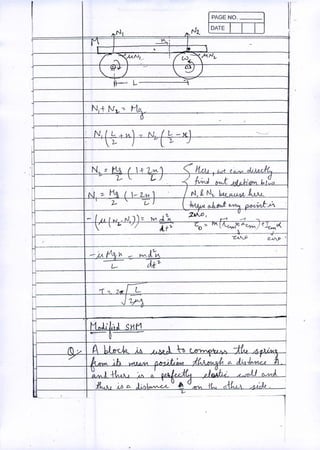 PAGE NO.
DATE
N₁ N₂
M x
μN₁ ω μN₂
L
N₁ + N₂ = Mg
N₁(L/2 + x) = N₂(L/2 - x)
N₂ = Mg/2 (1 + 2x/L)
Here, we can directly
find out relation b/w
N₁ = Mg/2 (1 - 2x/L)
N₁ & N₂ because here
torque about any point is
zero.
-(μ(N₂-N₁)) = m d²x/dt²
τ₀ = m(r⃗cm × a⃗cm) + Icm α
zero zero
-μMgx/L = m d²x/dt²
T = 2π√(L/2μg)
Modified SHM
Q:- A block is used to compress the spring
from its mean position through a distance A
and there is a perfectly elastic wall and
there is a distance A/2 on the other side.